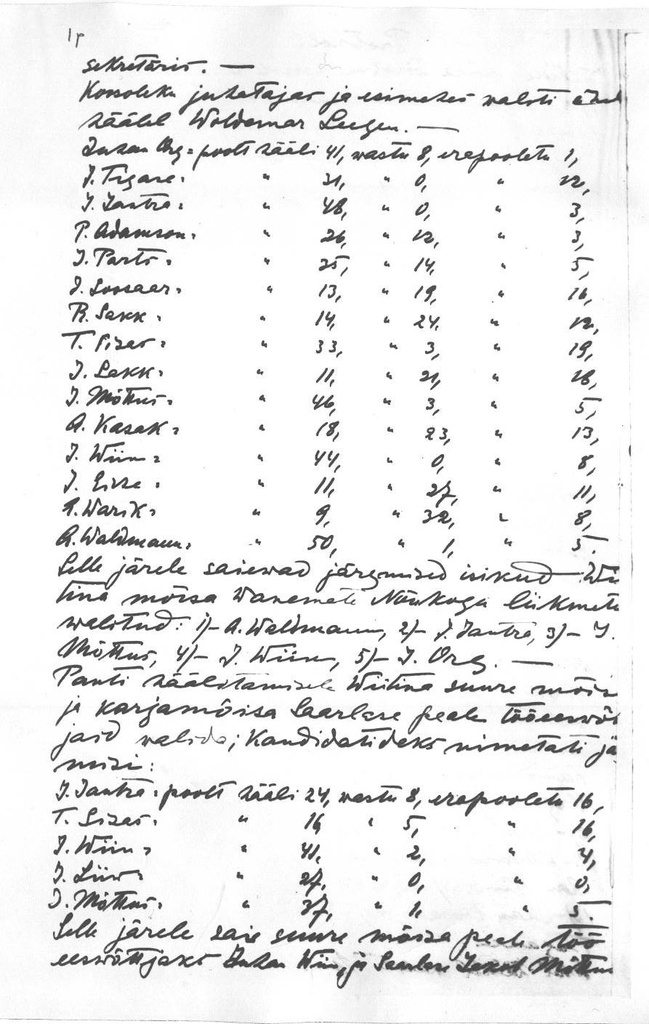 sekretäris. —
Koosoleku juhatajas ja esimehes valiti ühel
häälel Woldemar Leegen. —
Juhan Org = poolt hääli 41, wastu 8, erapooletu 1,
J. Tigane = " 31, " 0, " 12,
J. Jantra = " 48, " 0, " 3,
P. Adamson = " 26, " 12, " 3,
J. Parts = " 25, " 14, " 5,
J. Soosaar = " 13, " 19, " 16,
R. Sakk = " 14, " 24, " 12,
T. = " 33, " 3, " 19,
J. Sakk = " 11, " 21, " 18,
J. Mõttus = " 46, " 3, " 5,
A. Kasak = " 18, " 23, " 13,
J. Wiin = " 44, " 0, " 8,
J. = " 11, " 27, " 11,
A. Warik = " 9, " 32, " 8,
A. Waldmann = " 50, " 1, " 5.
Selle järele saiewad järgmised isikud Wii
tina mõisa Wanemate Nõukogu liikmete
walitud: 1)- A. Waldmann, 2)- J. Jantra, 3)- J.
Mõttus, 4)- J. Wiin, 5)- J. Org. —
Panti hääletamisele Wiitina suure mõis
ja karjamõisa Saarlase peale tööeeswõt
jaid walida; Kandidatideks nimetati jä
misi:
J. Jantra = poolt hääli 24, wastu 8, erapooletu 16,
T. = " 16, " 5, " 16,
J. Wiin = " 41, " 2, " 4,
J. Liiw = " 27, " 0, " 0,
J. Mõttus = " 37, " 1, " 5.
Selle järele sai suure mõisa peale töö
eeswõttjaks Juhan Wiin, ja Saarlase Mõttus